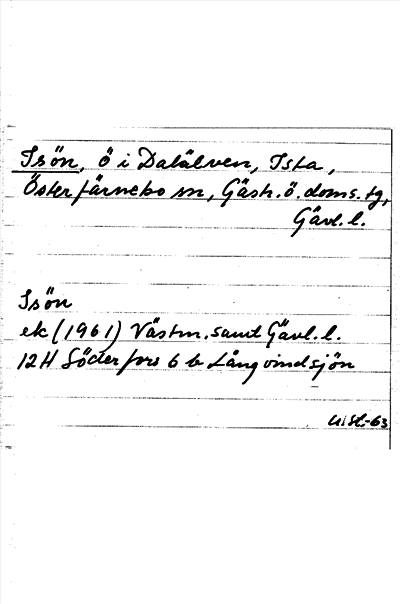 Isön, ö i Dalälven, Ista,
Österfärnebo sn, Gästr. ö. doms. tg,
Gävl. l.
Isön
ek (1961) Västm. samt Gävl. l.
12H Söderfors 6 b Långvindsjön